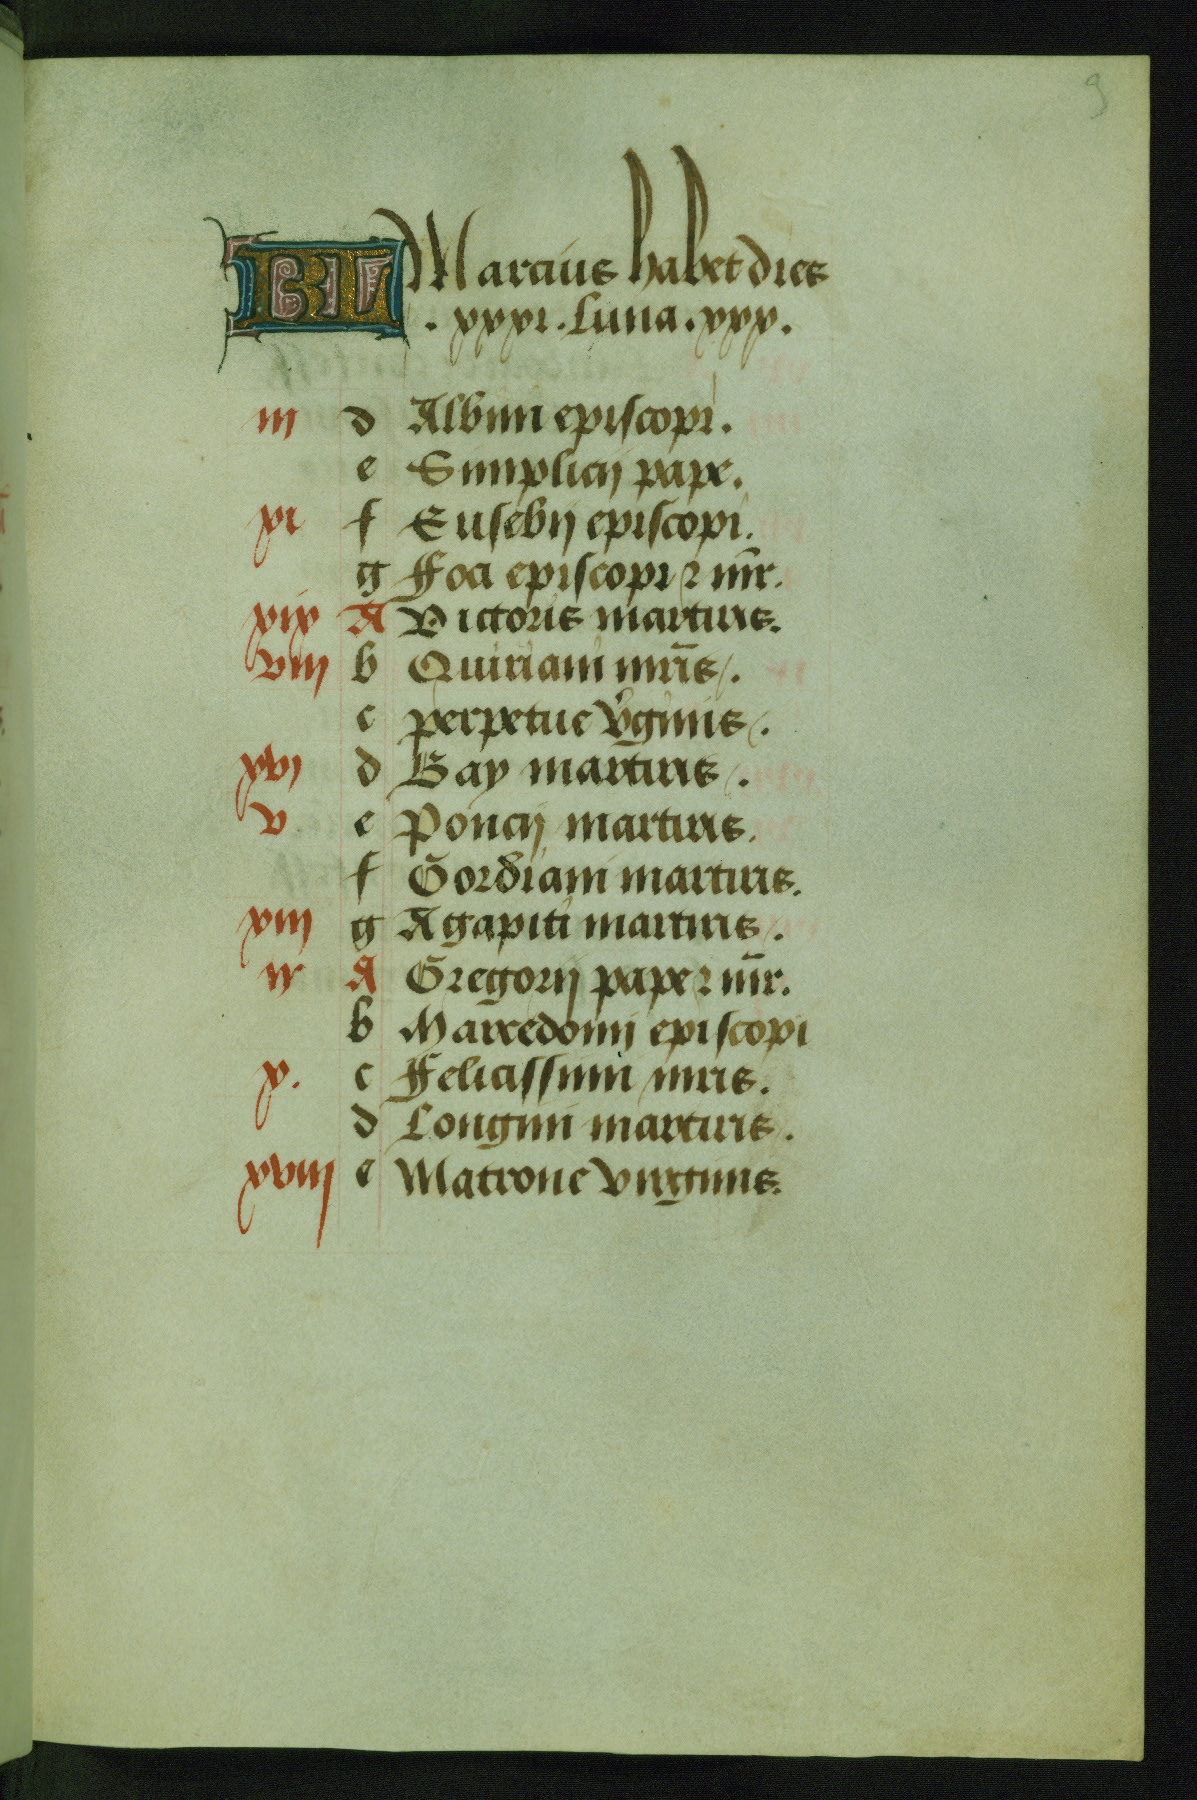 9
KL Marcius habet dies
. xxxi . Luna . xxx .
iii d Albini episcopi .
e Simplicij pape .
xi f Eusebij episcopi .
g Foci episcopi ⁊ mr̄ .
xix A Victoris martiris .
viii b Quiriani mr̄is .
c perpetue v̾ginis .
xvi d Bay martiris .
v e Poncij martiris .
f Gordiani martiris .
xiii g Agapiti martiris .
ii A Gregorij pape ⁊ mr̄ .
b Marcedonij episcopi
x . c Felicissimi mris .
d Longini martiris .
xviii e Matrone virginis .